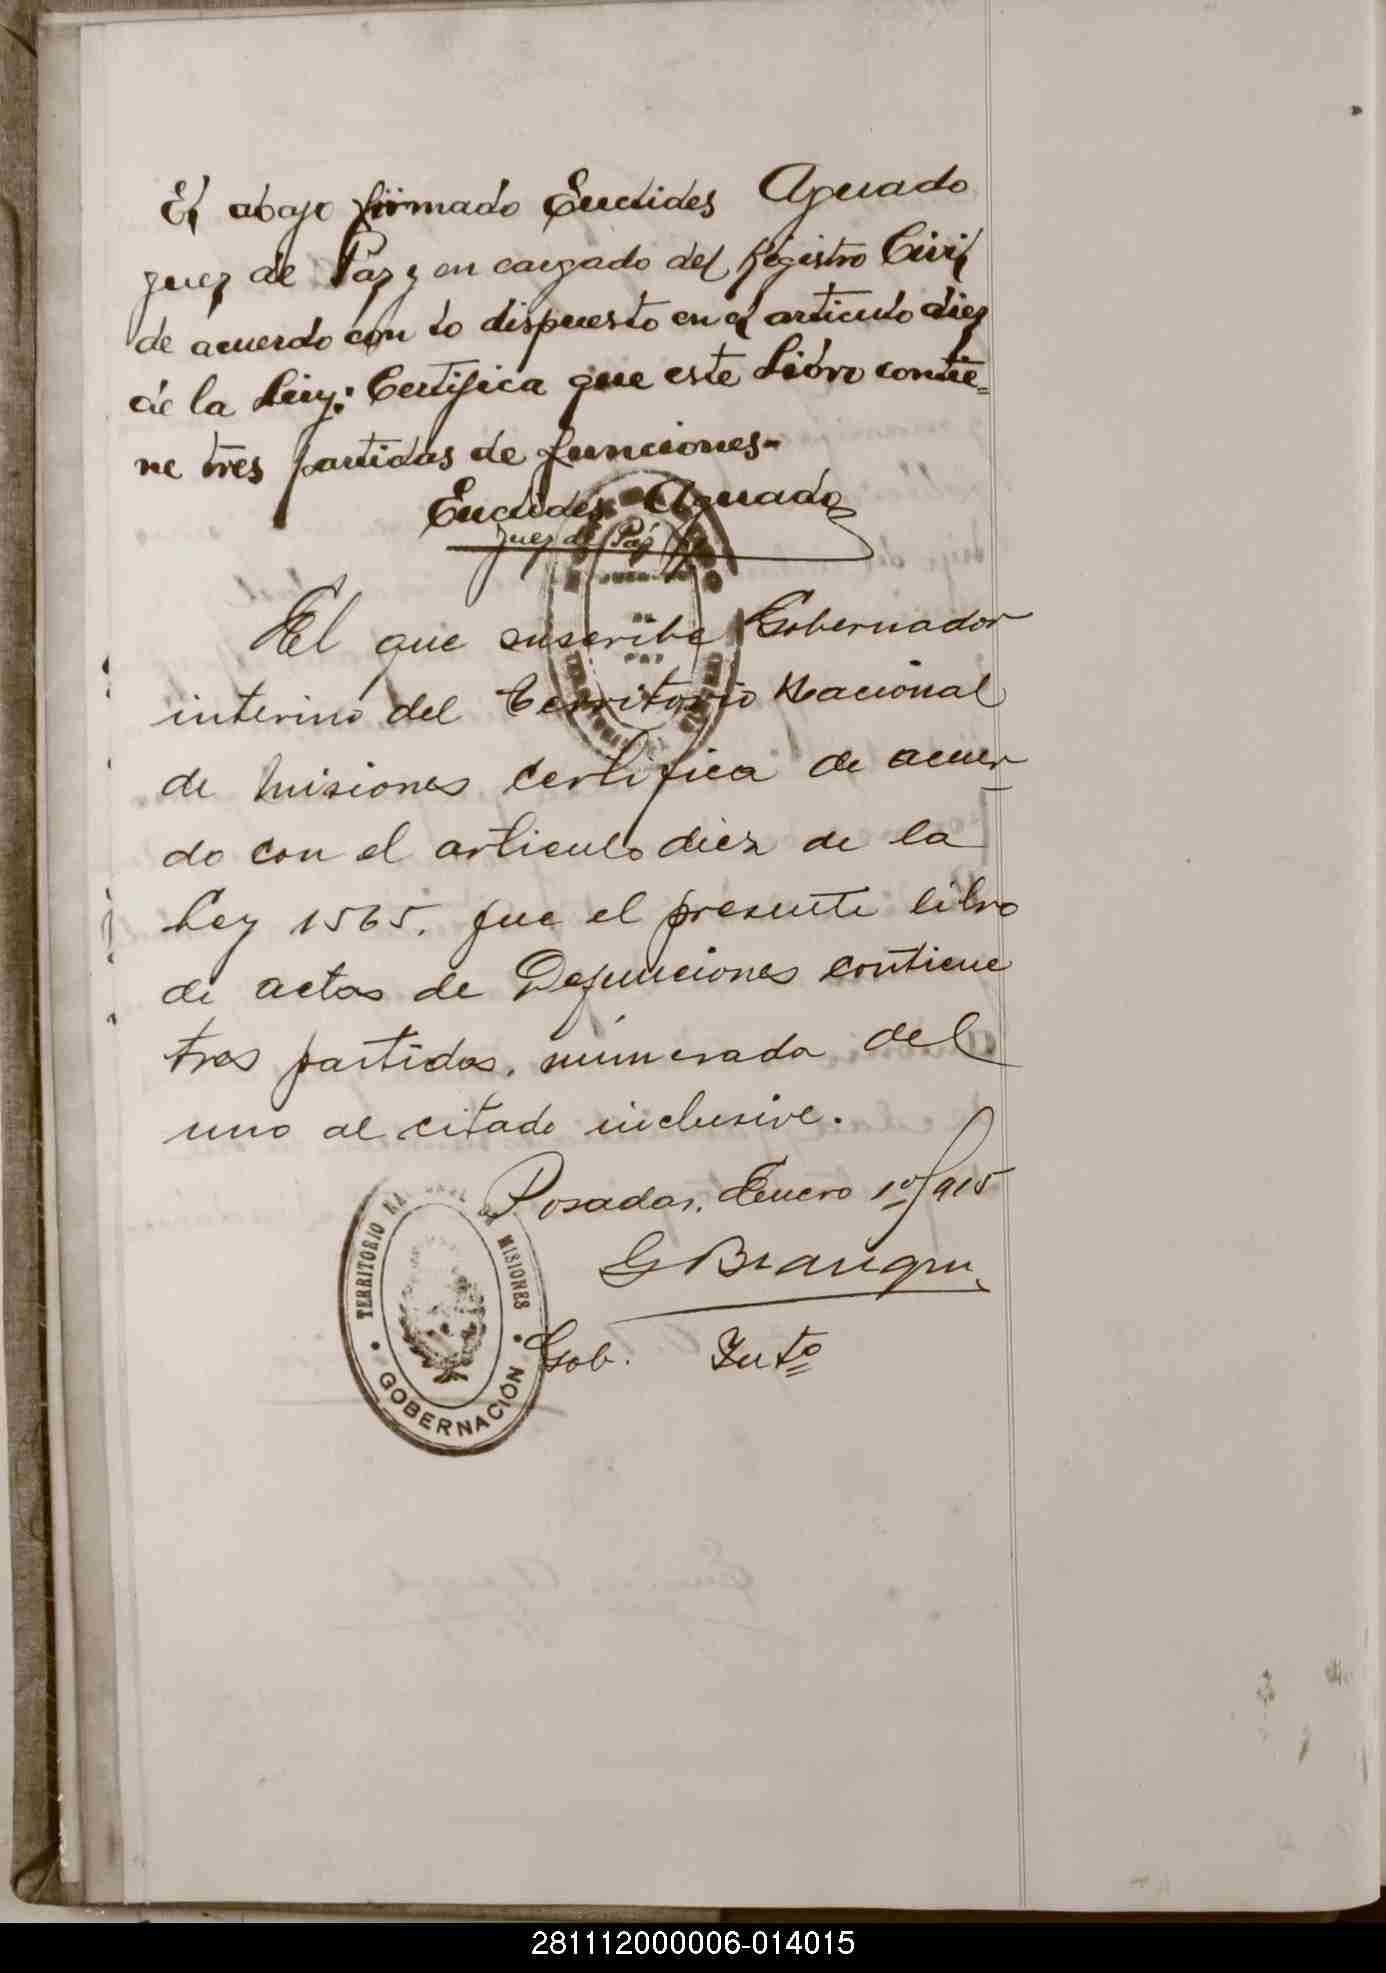 El abajo firmado Euclides Aguado
juez de Paz y en cargado del Registro Civil
de acuerdo con lo dispuesto en el articulo diez
de la Ley: Certifica que este Libro contie=
ne tres partidas de funciones-
Euclides Aguado
Juez de Paz
El que suscribe Gobernador
interino del Territorio Nacional
de Misiones certifica de acuer
do con el articulo diez de la
Ley 1565. que el presente libro
de actas de Defunciones contiene
tres partidas. númerada del
uno al citado inclusive.
Posadas, Enero 1º/915
Gob. Intº
TERRITORIO NACIONAL DE MISIONES
GOBERNACIÓN
281112000006-014015